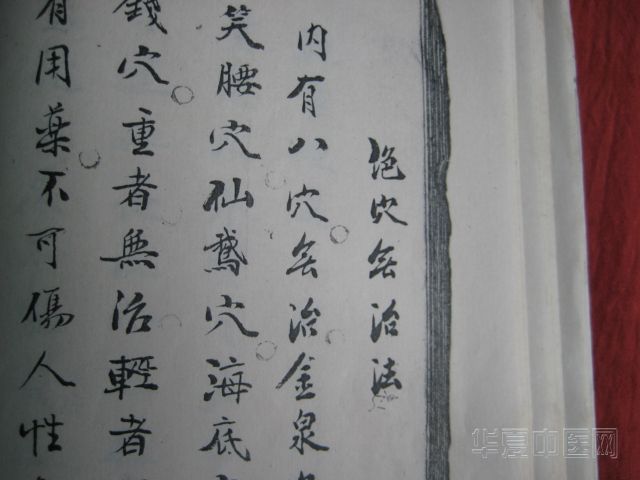 絕穴無治法
内有八穴無治金泉
笑腰穴仙鵞穴海底
錢穴重者無活輕者
有用藥不可傷人性
华夏中医网